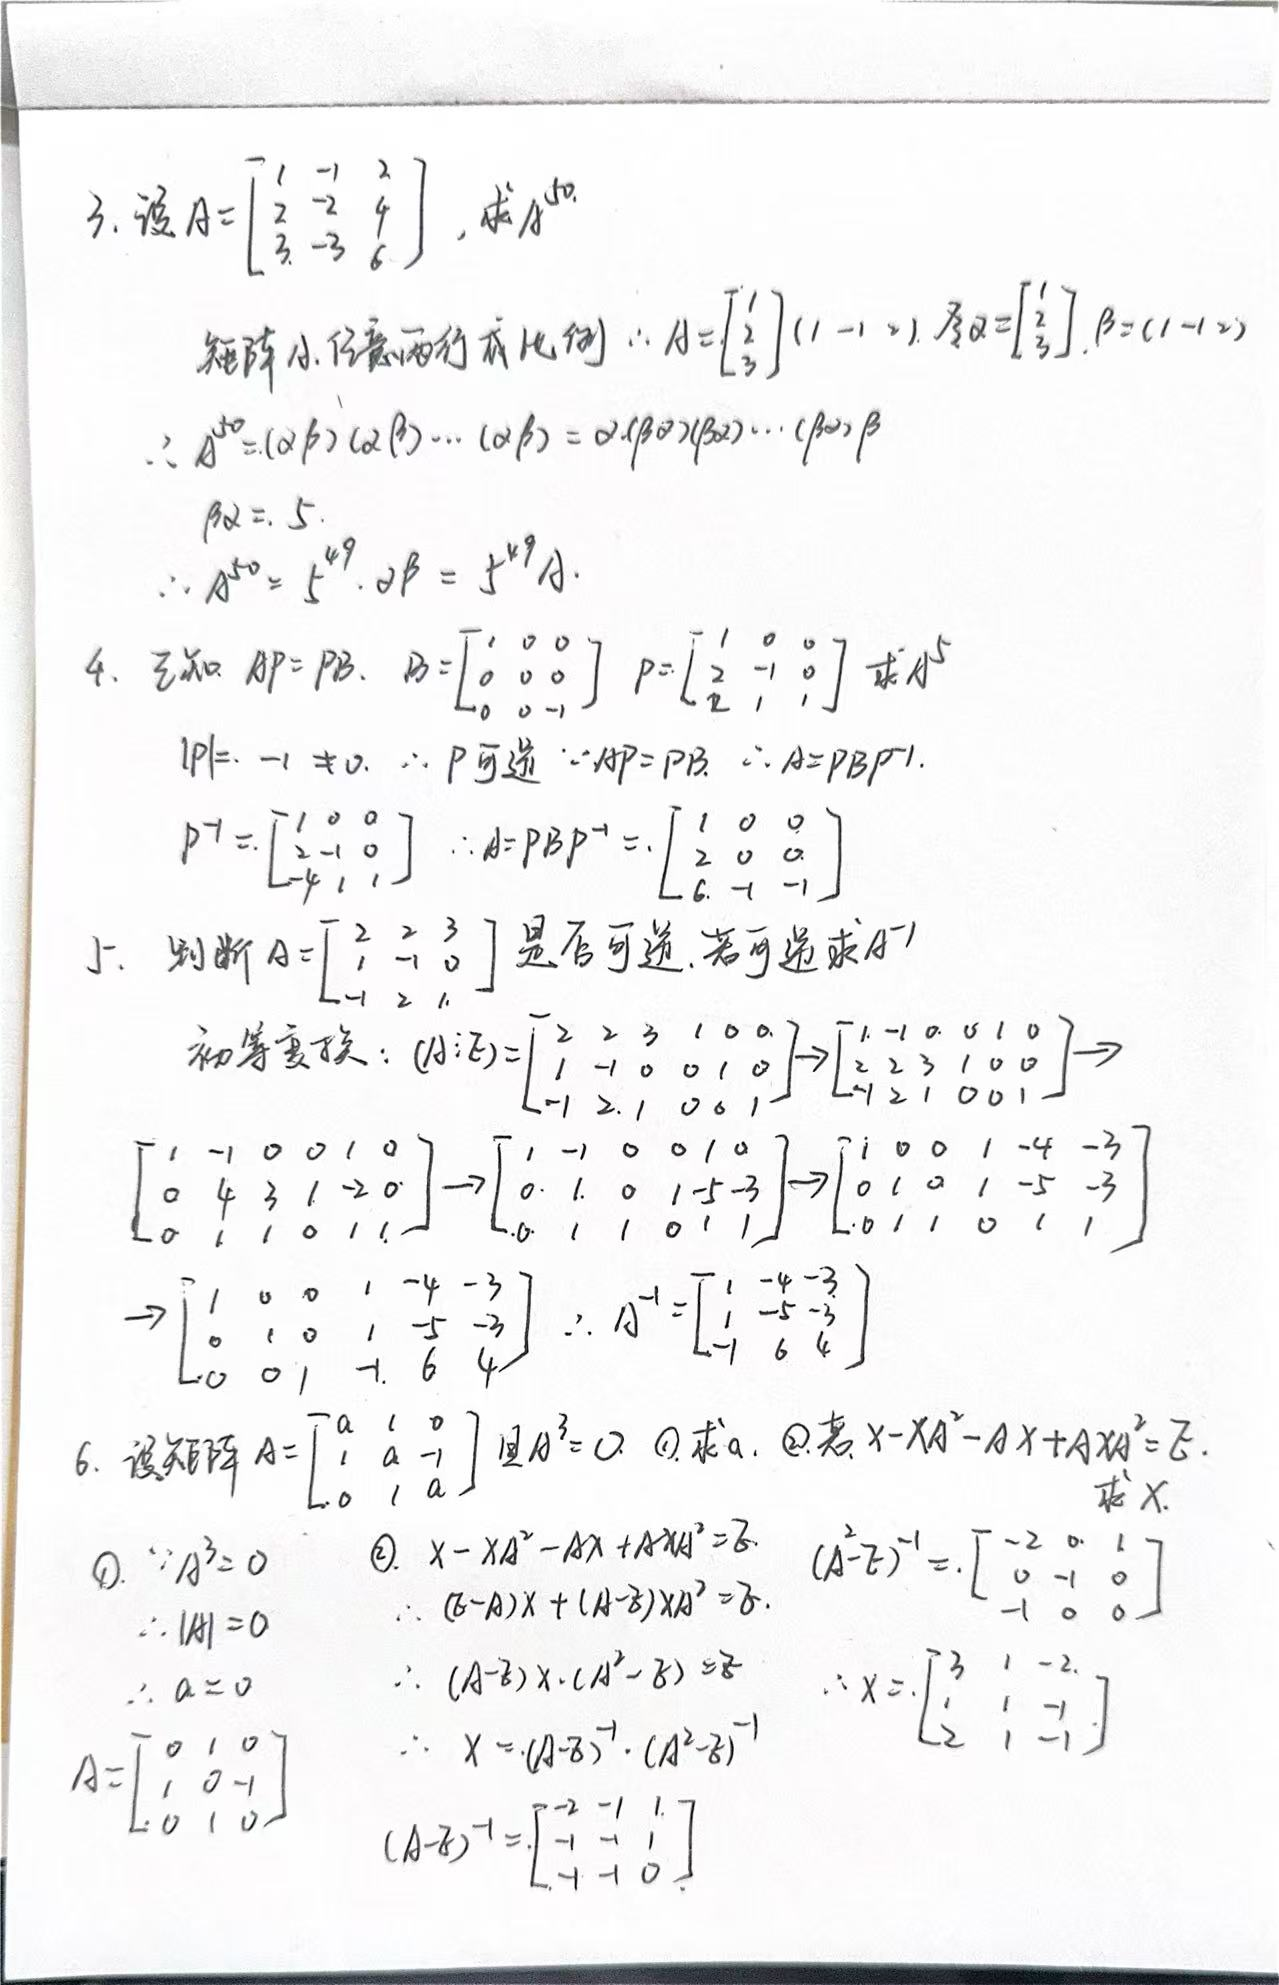 3. 设 A = [1 -1 2; 2 -2 4; 3 -3 6], 求A^50.
矩阵A任意两行成比例 ∴ A = [1; 2; 3] (1 -1 2). 令α = [1; 2; 3], β = (1 -1 2)
∴ A^50 = (αβ)(αβ)…(αβ) = α(βα)(βα)…(βα)β
βα = 5.
∴ A^50 = 5^49 · αβ = 5^49 A.
4. 已知 AP = PB. B = [1 0 0; 0 0 0; 0 0 -1] P = [1 0 0; 2 -1 0; 2 1 1] 求A^5
|P| = -1 ≠ 0. ∴ P可逆 ∵ AP = PB. ∴ A = PBP^-1.
P^-1 = [1 0 0; 2 -1 0; -4 1 1] ∴ A = PBP^-1 = [1 0 0; 2 0 0; 6 -1 -1]
5. 判断 A = [2 2 3; 1 -1 0; -1 2 1] 是否可逆. 若可逆求A^-1
初等变换: (A⋮E) = [2 2 3 1 0 0; 1 -1 0 0 1 0; -1 2 1 0 0 1] → [1 -1 0 0 1 0; 2 2 3 1 0 0; -1 2 1 0 0 1] →
[1 -1 0 0 1 0; 0 4 3 1 -2 0; 0 1 1 0 1 1] → [1 -1 0 0 1 0; 0 1 0 1 -5 -3; 0 1 1 0 1 1] → [1 0 0 1 -4 -3; 0 1 0 1 -5 -3; 0 1 1 0 1 1]
→ [1 0 0 1 -4 -3; 0 1 0 1 -5 -3; 0 0 1 -1 6 4] ∴ A^-1 = [1 -4 -3; 1 -5 -3; -1 6 4]
6. 设矩阵 A = [a 1 0; 1 a -1; 0 1 a] 且A^3 = 0. ①求a. ②若 X - XA^2 - AX + AXA^2 = E.
求X.
①. ∵ A^3 = 0
∴ |A| = 0
∴ a = 0
A = [0 1 0; 1 0 -1; 0 1 0]
②. X - XA^2 - AX + AXA^2 = E.
∴ (E-A)X + (A-E)XA^2 = E.
∴ (A-E)X·(A^2-E) = E
∴ X = (A-E)^-1 · (A^2-E)^-1
(A-E)^-1 = [-2 -1 1; -1 -1 1; -1 -1 0]
(A^2-E)^-1 = [-2 0 1; 0 -1 0; -1 0 0]
∴ X = [3 1 -2; 1 1 -1; 2 1 -1]